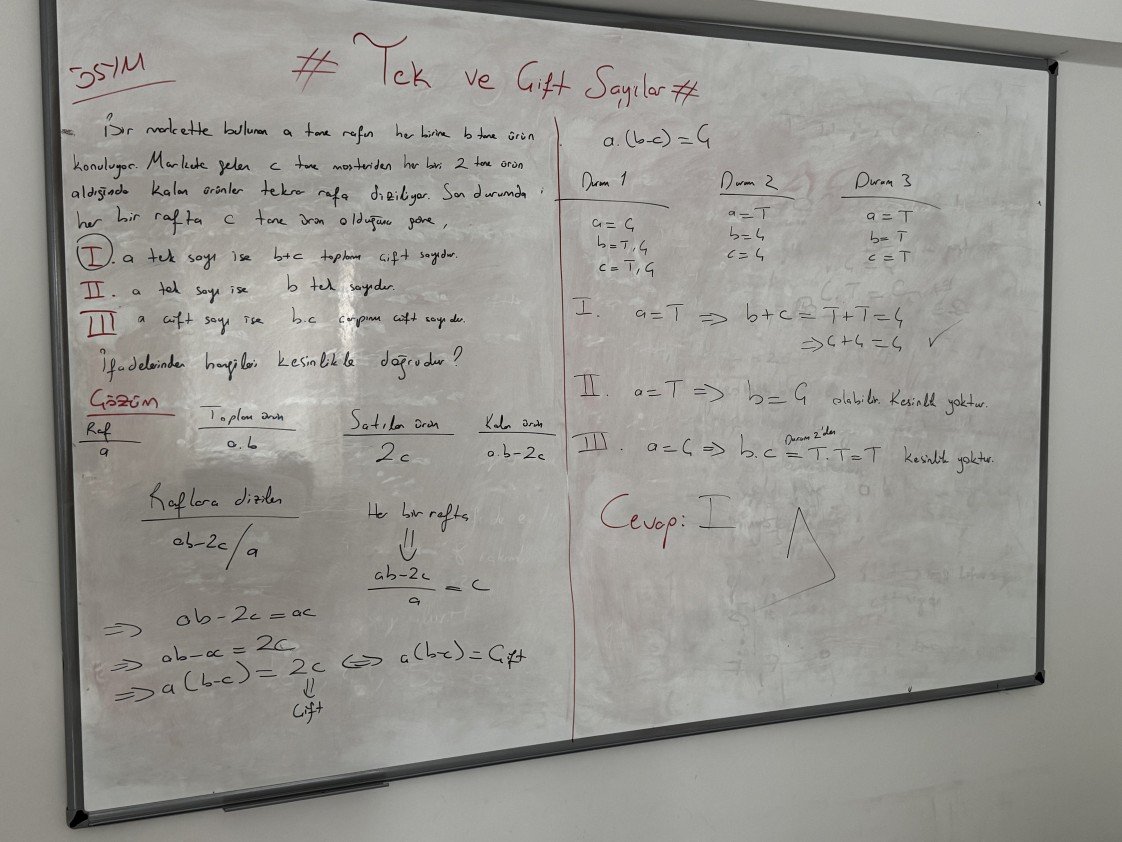 ÖSYM
# Tek ve Çift Sayılar #
Bir markette bulunan a tane rafın her birine b tane ürün
konuluyor. Markete gelen c tane müşteriden her biri 2 tane ürün
aldığında kalan ürünler tekrar rafa diziliyor. Son durumda
her bir rafta c tane ürün olduğuna göre,
I. a tek sayı ise b+c toplamı çift sayıdır.
II. a tek sayı ise b tek sayıdır.
III a çift sayı ise b.c çarpımı çift sayıdır.
İfadelerinden hangileri kesinlikle doğrudur?
Çözüm
Raf
a
Toplam ürün
a.b
Satılan ürün
2c
Kalan ürün
a.b-2c
Raflara dizilen
ab-2c/a
Her bir rafta
⇓
ab-2c/a = c
⇒ ab-2c = ac
⇒ ab-ac = 2c
⇒ a(b-c) = 2c ⇔ a(b-c) = Çift
⇓
Çift
a.(b-c) = Ç
Durum 1
a = Ç
b = T,Ç
c = T,Ç
Durum 2
a = T
b = Ç
c = Ç
Durum 3
a = T
b = T
c = T
I. a = T ⇒ b+c = T+T = Ç
⇒ Ç+Ç = Ç ✓
II. a = T ⇒ b = Ç olabilir. Kesinlik yoktur.
III. a = Ç ⇒ b.c = T.T = T Kesinlik yoktur.
Durum 2'den
Cevap: I